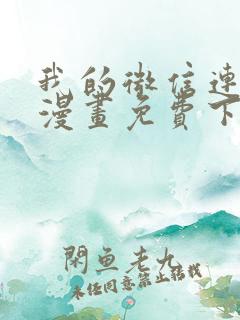 我的微信連
漫畫免費下
閑魚老九
未经同意禁止转载